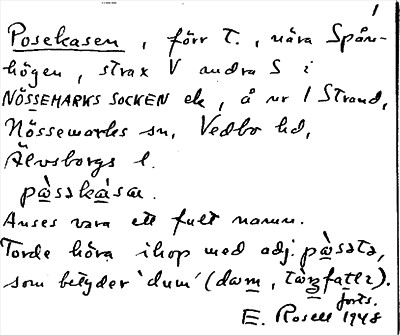 1
Posekasen, förr T., nära Spån-
högen, strax V andra S i
NÖSSEMARKS SOCKEN ek, å nr 1 Strand,
Nössemarks sn, Vedbo hd,
Älvsborgs l.
Anses vara ett fult namn.
Torde höra ihop med adj.
som betyder 'dum' (
forts.
E. Rosell 1948